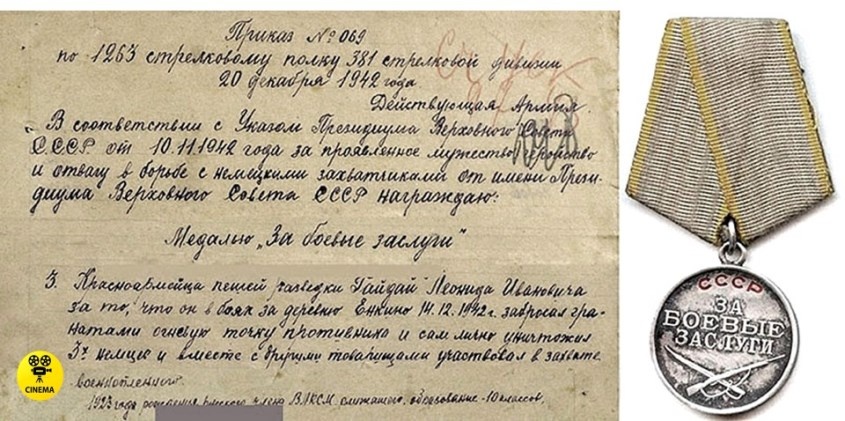 Приказ № 069
по 1263 стрелковому полку 381 стрелковой дивизии
20 декабря 1942 года
Действующая Армия.
В соответствии с Указом Президиума Верховного Совета
СССР от 10.11.1942 года за проявленное мужество геройство
и отвагу в борьбе с немецкими захватчиками от имени Прези-
диума Верховного Совета СССР награждаю:
Медалью „За боевые заслуги"
3. Красноармейца пешей разведки Гайдай Леонида Ивановича
за то, что он в боях за деревню Енкино 14.12.1942г. забросал гра-
натами огневую точку противника и сам лично уничтожил
3х немцев и вместе с другими товарищами участвовал в захвате
военнопленного.
1923 года рождения, русского, члена ВЛКСМ, служащего, образование - 10 классов.
CINEMA
СССР
ЗА
БОЕВЫЕ
ЗАСЛУГИ